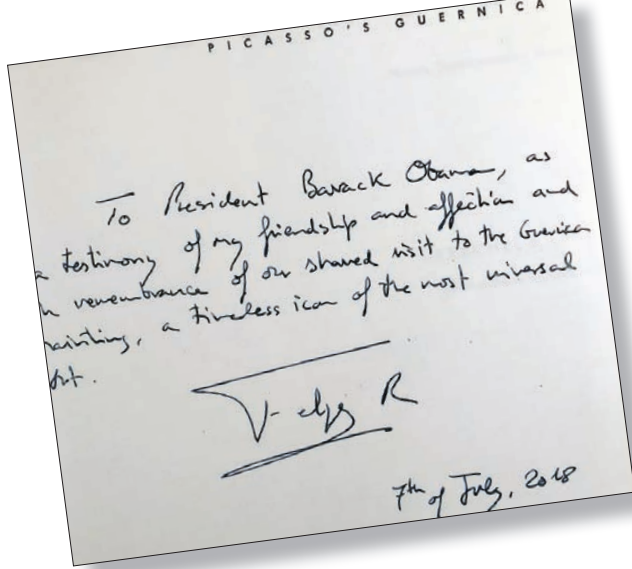 PICASSO'S GUERNICA
To President Barack Obama, as
a testimony of my friendship and affection and
remembrance of our shared visit to the Guernica
painting, a timeless icon of the most universal
art.
Felipe R
7th of July, 2018